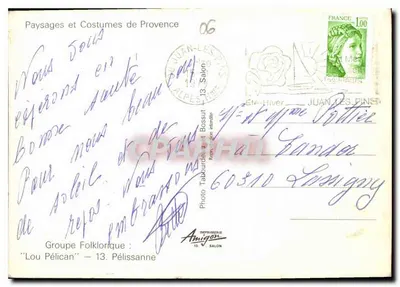 Paysages et Costumes de Provence
06
Nous vous
espérons en
Bonne santé
Pour nous beaucoup
de soleil et de
repos. Nous vous
embrassons
Groupe Folklorique :
"Lou Pélican" — 13. Pélissanne
Photo Tabourse Bossut - 13. Salon
IMPRIMERIE
Amigon
13 SALON
JUAN-LES-PINS
FRANCE
1,00
JUAN LES PINS
Mr et Mme Pottier
à Landa
60310 Lassigny